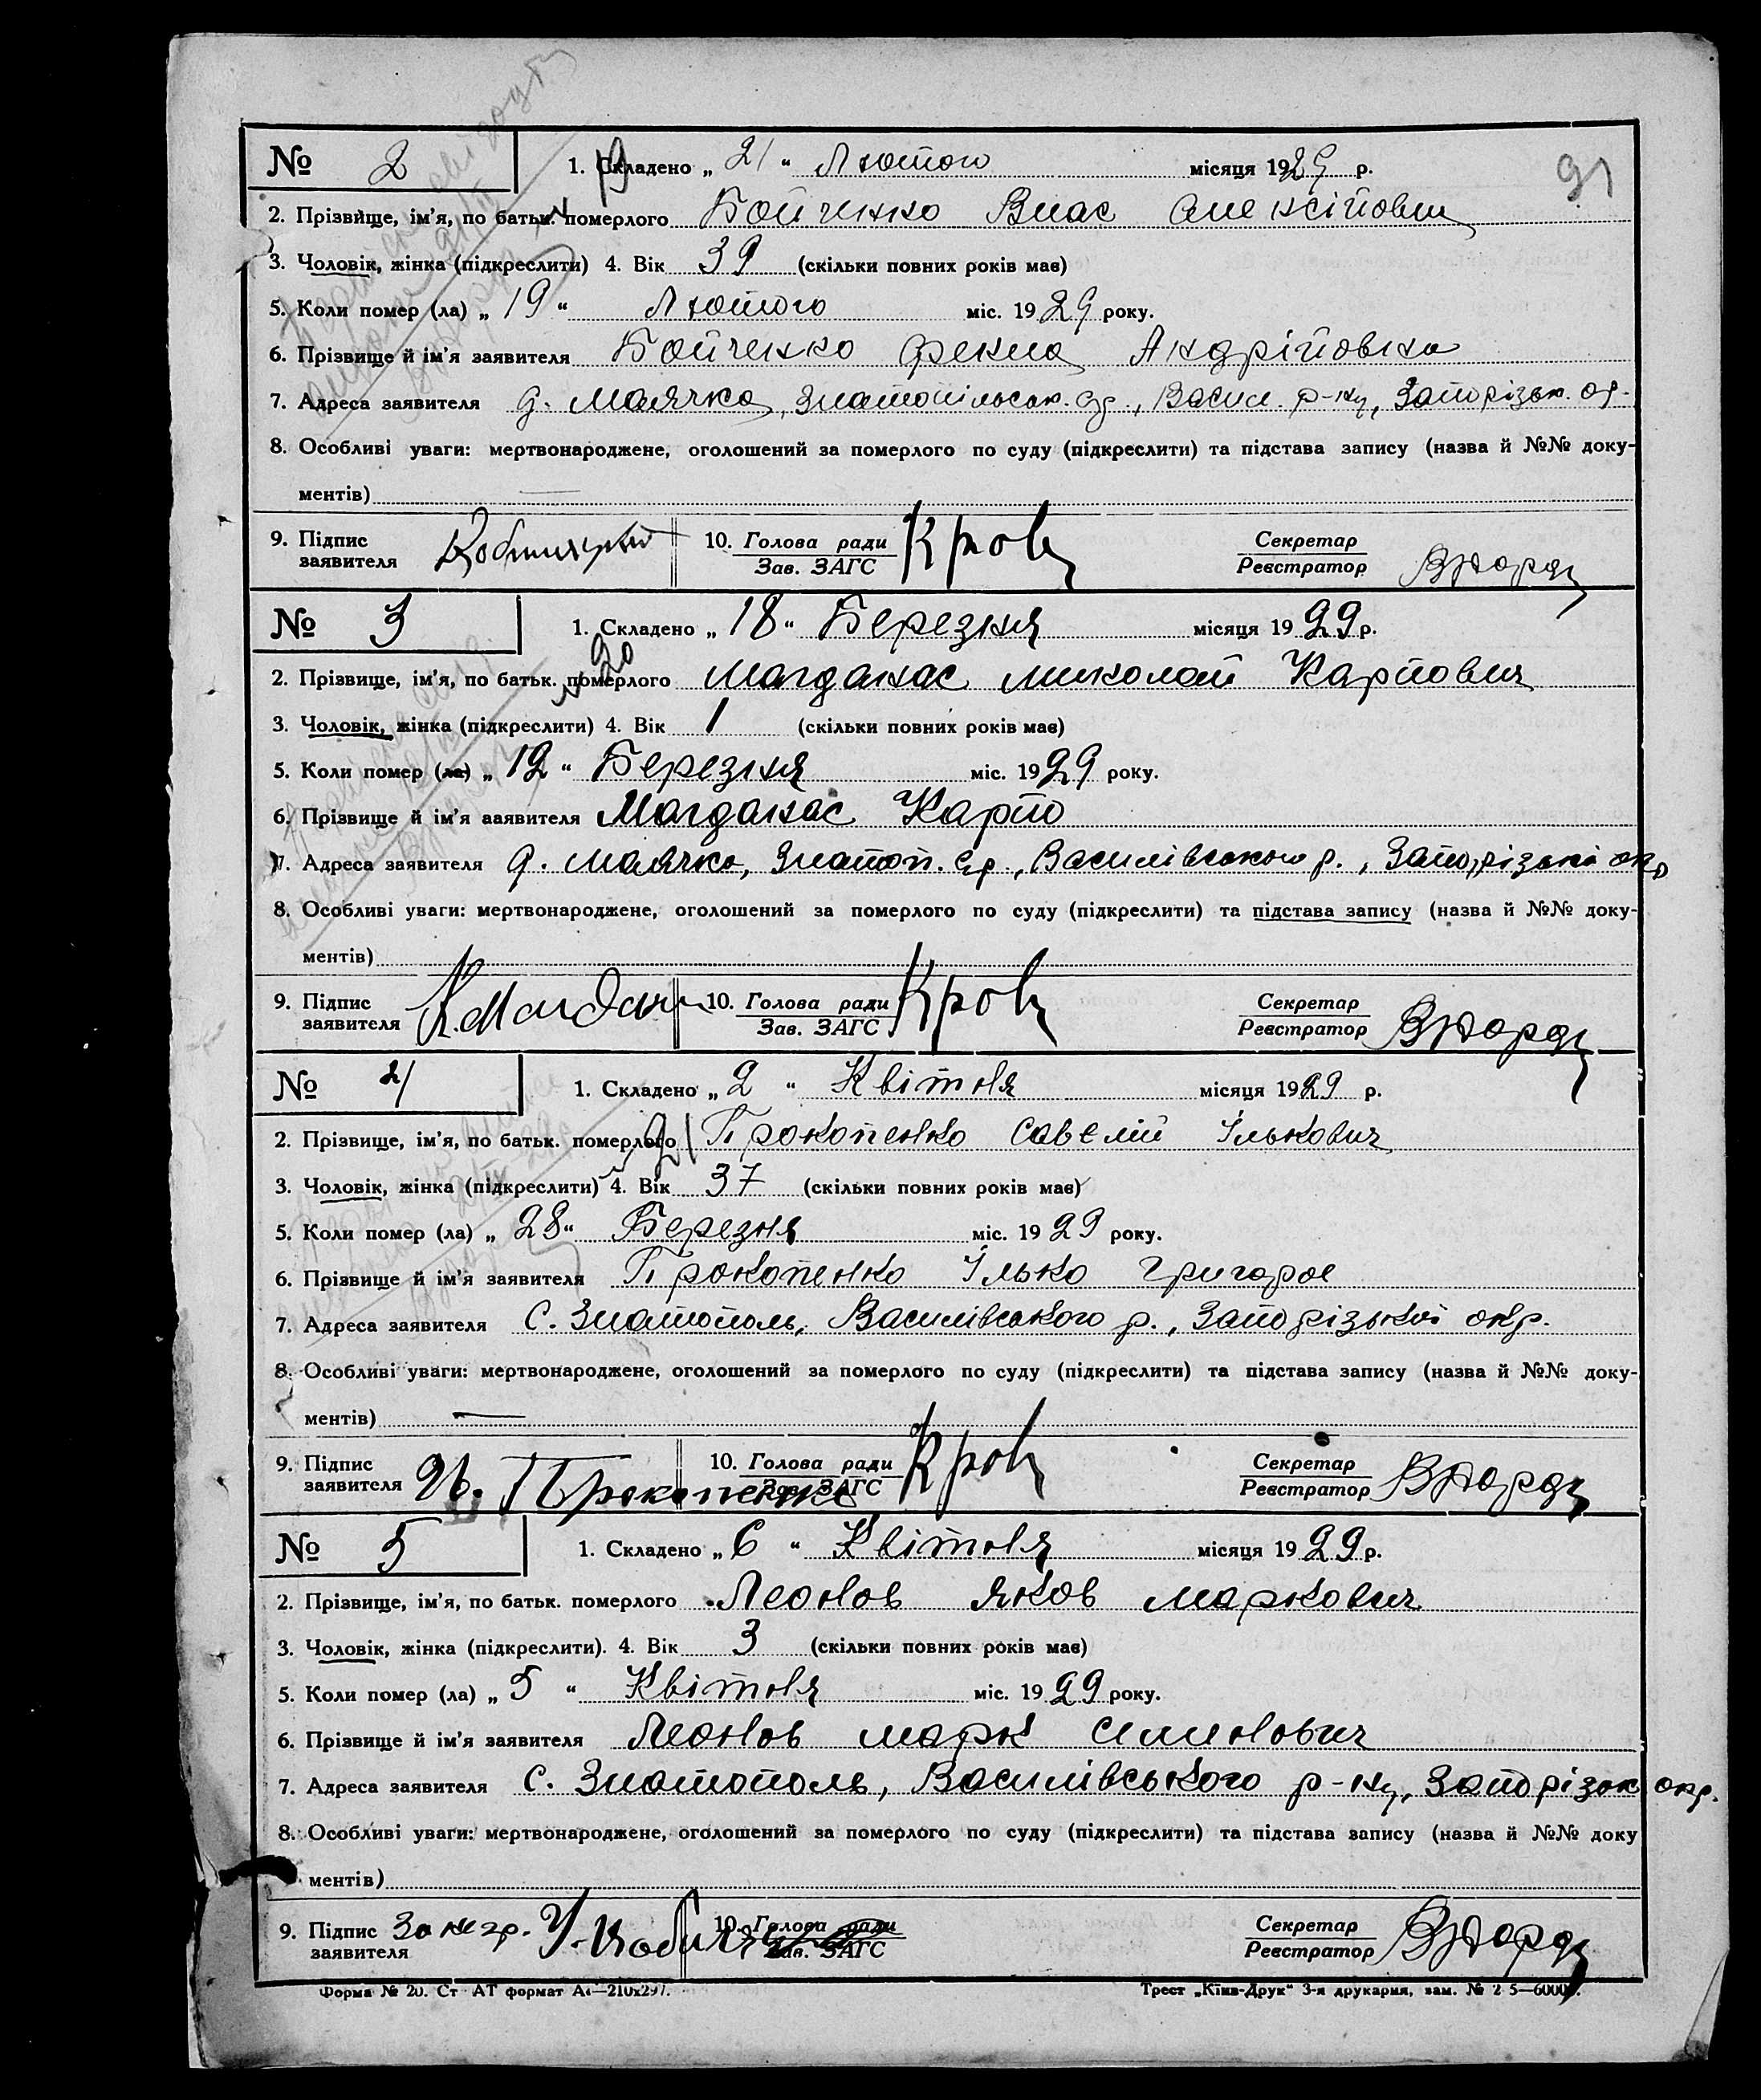 91
№ 2 1. Складено „ 21 “ Лютого місяця 1929 р.
19
2. Прізвище, ім’я, по батьк. померлого Бойченко Влас Олексійович
3. Чоловік, жінка (підкреслити) 4. Вік 39 (скільки повних років має)
5. Коли помер (ла) „ 19 “ Лютого міс. 1929 року.
6. Прізвище й ім’я заявителя Бойченко Фекла Андрійовна
7. Адреса заявителя д. Маячка, Златопільськ. с/р, Васил. р-ну, Запорізьк. ок.
8. Особливі уваги: мертвонароджене, оголошений за померлого по суду (підкреслити) та підстава запису (назва й №№ доку-
ментів)
9. Підпис 10. Голова ради Секретар
заявителя Зав. ЗАГС Реєстратор
№ 3 1. Складено „ 18 “ Березня місяця 1929 р.
20
2. Прізвище, ім’я, по батьк. померлого Магданас Миколай Карпович
3. Чоловік, жінка (підкреслити) 4. Вік 1 (скільки повних років має)
5. Коли помер (ла) „ 12 “ Березня міс. 1929 року.
6. Прізвище й ім’я ааявителя Магданас Карпо
7. Адреса заявителя д. Маячка, Златоп. с/р., Василівського р., Запорізької окр
8. Особливі уваги: мертвонароджене, оголошений за померлого по суду (підкреслити) та підстава запису (назва й №№ доку-
ментів)
9. Підпис 10. Голова ради Секретар
заявителя Зав. ЗАГС Реєстратор
№ 4 1. Складено „ 2 “ Квітня місяця 1929 р.
21
2. Прізвище, ім’я, по батьк. померлого Прокопенко Савелій Ількович
3. Чоловік, жінка (підкреслити) 4. Вік 37 (скільки повних років має)
5. Коли помер (ла) „ 28 “ Березня міс. 1929 року.
6. Прізвище й ім’я заявителя Прокопенко Ілько Григоров
7. Адреса заявителя С. Златополь, Василівського р., Запорізької окр.
8. Особливі уваги: мертвонароджене, оголошений за померлого по суду (підкреслити) та підстава запису (назва й №№ доку-
ментів) —
9. Підпис 10. Голова ради Секретар
заявителя Прокопенко Зав. ЗАГС Реєстратор
№ 5 1. Складено „ 6 “ Квітня місяця 1929 р.
2. Прізвище, ім’я, по батьк. померлого Леонов Яков Маркович
3. Чоловік, жінка (підкреслити). 4. Вік 3 (скільки повних років має)
5. Коли помер (ла) „ 5 “ Квітня міс. 1929 року.
6. Прізвище й ім’я заявителя Леонов Марк Симонович
7. Адреса заявителя С. Златополь, Василівського р-ну, Запорізьк окр.
8. Особливі уваги: мертвонароджене, оголошений за померлого по суду (підкреслити) та підстава запису (назва й №№ доку
ментів)
9. Підпис За негр. 10. Голова ради Секретар
заявителя Зав. ЗАГС Реєстратор
Форма № 20. Ст АТ формат А4—210х297. Трест „Київ-Друк“ 3-я друкарня, зам. №